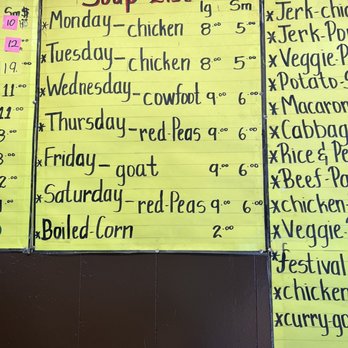 Soup List
lg Sm
*Monday-chicken 8.00 5.00
*Tuesday-chicken 8.00 5.00
*Wednesday-cowfoot 9.00 6.00
*Thursday-red-Peas 9.00 6.00
*Friday-goat 9.00 6.00
*Saturday-red-Peas 9.00 6.00
*Boiled-Corn 2.00
Sm
10
12
19.00
11.00
11.00
*Jerk-chi
*Jerk-Po
*Veggie-P
*Potato-S
*Macaron
*Cabbag
*Rice & Pe
*Beef-Pa
*chicken-
*Veggie-
*festival
*chicken
*curry-go